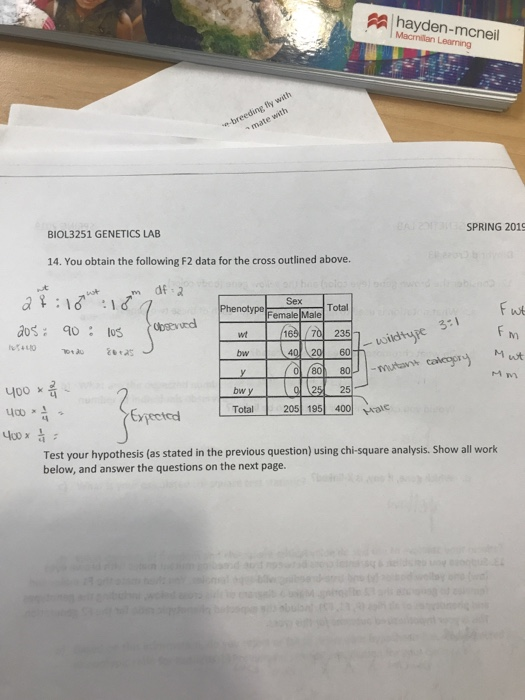 hayden-mcneil
Macmillan Learning
-breeding fly with
mate with
BIOL3251 GENETICS LAB
SPRING 2019
14. You obtain the following F2 data for the cross outlined above.
wt wt m df = 2
2♀ : 1♂ : 1♂
205 : 90 : 105 observed
165+40 70+20 80+25
400 × 2/4 =
400 × 1/4 =
400 × 1/4 =
Expected
Phenotype Sex Total
Female Male
wt 165 70 235
bw 40 20 60
y 0 80 80
bw y 0 25 25
Total 205 195 400
- wildtype 3:1
- mutant category
Male
F wt
F m
M wt
M m
Test your hypothesis (as stated in the previous question) using chi-square analysis. Show all work
below, and answer the questions on the next page.